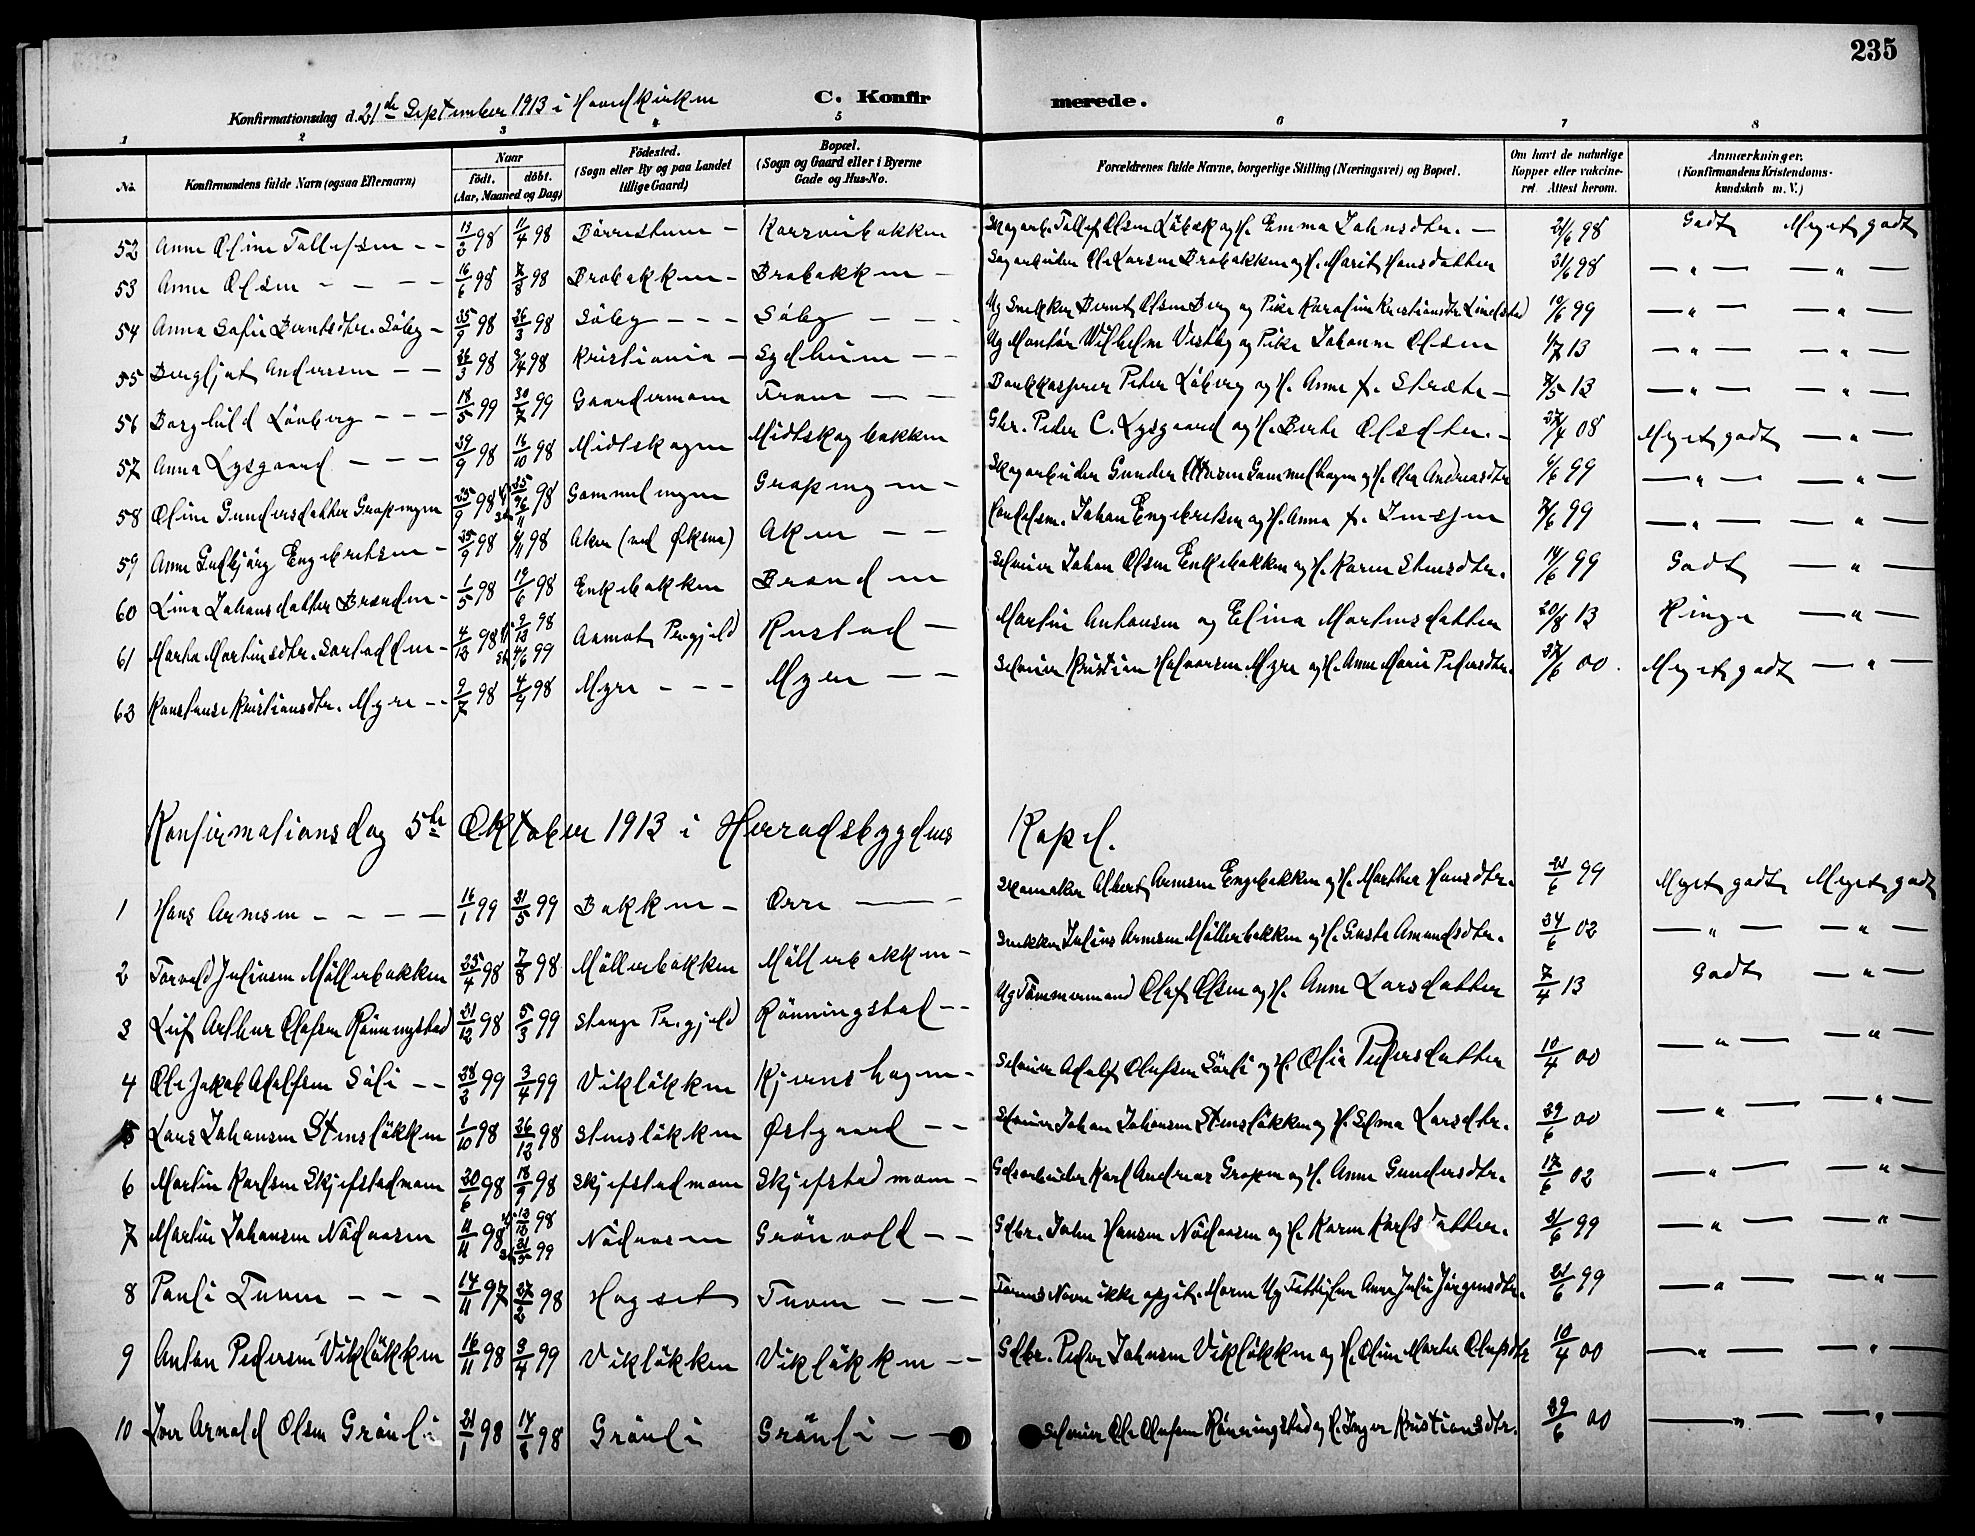 235
Konfirmationsdag d. 21de September 1913 i Hovedkirken
C. Konfirmerede.
1 2 3 4 5 6 7 8
No. Konfirmandens fulde Navn (ogsaa Efternavn) Naar født. døbt. (Aar, Maaned og Dag) Fødested. (Sogn eller By og paa Landet tillige Gaard) Bopæl. (Sogn og Gaard eller i Byerne Gade og Hus-No. Forældrenes fulde Navne, borgerlige Stilling (Næringsvei) og Bopæl. Om havt de naturlige Kopper eller vaccineret. Attest herom. Anmærkninger. (Konfirmandens Kristendomskundskab m. V.)
52 Anne Oline Tollefsen 11/4 98 Børrestuen Skogarb. Tollef Olsen Løbak og H. Emma Johnsdtr. 21/6 98 Godt Meget godt
53 Anne Olsen 16/6 98 7/8 98 Brobakken Brobakken Sagarbeider Ole Larsen Brobakken og H. Marit Hansdatter 21/6 98 — " — — " —
54 Anna Sofie Berntsdtr. Søby 25/9 98 Søby Søby Ug Snekker Bernt Olsen Berg og Pike Karoline Kristiansdtr. 99 — " — — " —
55 Bergljot Andersen 26/3 98 98 Kristiania Sydhuin Ug Montør Vilhelm Vestby og Pike Johanne Olsen 13 — " — — " —
56 Borghild Løvberg 18/5 99 30/7 99 Gaardermoen Troen Bankkasserer Peter Løberg og H. Anne f. Stræte 7/5 13 — " — — " —
57 Anna Lysgaard 29/9 98 16/10 98 Midtskogen Midtskogbakken Gbr. Peder C. Lysgaard og H. Berte Olsdtr. 27/4 08 Meget godt — " —
58 Oline Gundersdatter Grasmyren 25/9 98 98 Gammelmyren Grasmyren Skogarbeider Gunder Gammelhagen og H. Olea Andreasdtr 99 — " — — " —
59 Anne Gudbjørg Engebretsen 25/9 98 98 Aker (ved Øksna) Aken Johan Engebretsen og H. Anna f. Imsjen 99 — " — — " —
60 Lina Johansdatter Brænden 1/5 98 19/6 98 Enkebakken Brænden Selveier Johan Olsen Enkebakken og H. Karen Stensdtr. 14/6 99 Godt — " —
61 Marta Martinsdtr. 4/12 98 99 Aamot Prgjeld Rustad Martin Antonsen og Elina Martinsdatter 20/8 13 Ringe — " —
62 Konstanse Kristiansdtr. Myre 9/7 98 4/9 98 Myre Myre Selveier Kristian Halvorsen Myre og H. Anne Marie Pedersdtr. 27/6 00. Meget godt — " —
Konfirmationsdag 5te Oktober 1913 i Herradsbygdens Kapel.
1 Hans Arnesen 16/1 99 21/5 99 Bakken Orre Skomaker Albert Arnesen Engebakken og H. Marthe Hansdtr. 21/6 99 Meget godt Meget godt
2 Torvald Juliusen Møllerbakken 25/4 98 7/8 98 Møllerbakken Møllerbakken Snekker Julius Arnesen Møllerbakken og H. Gusta Amundsdtr. 24/6 02 — " — — " —
3 Leif Arthur Olafsen Rønningstad 21/12 98 5/3 99 Stange Pr.gjeld Rønningstad Ug Tømmermand Olaf Olsen og H. Anne Larsdatter 7/4 13 Godt — " —
4 Ole Jakob Adolfsen Søli 28/2 99 3/4 99 Vikløkken Kjernshagen Selveier Adolf Olufsen Sørli og H. Olia Pedersdatter 10/4 00 — " — — " —
5 Lars Johansen Stensløkken 1/10 98 26/12 98 Stensløkken Østgaard Selveier Johan Johansen Stensløkken og H. Selma Larsdtr. 29/6 00 — " — — " —
6 Martin Karlsen Skjefstadmoen 20/6 98 18/9 98 Skjefstadmoen Skjefstadmoen Karl Andreas og H. Anne Gundersdtr. 17/6 02 — " — — " —
7 Martin Johansen Nødaasen 4/11 98 98 99 Nødaasen Grønvold Gbr. Johan Hansen Nødaasen og H. Karen Karlsdatter. 21/6 99 — " — — " —
8 Pauli Tuven 14/11 97 27/2 98 Hogset Tuven Farens Navn ikke opgit. Moren Ug Anne Julie Jørgensdtr. 21/6 99 — " — — " —
9 Anton Pedersen Vikløkken 16/11 98 3/4 99 Vikløkken Vikløkken Gbr. Peder Johnsen Vikløkken og H. Oline Marte Olufsdtr 10/4 00 — " — — " —
10 Iver Arnold Olsen Grønli 21/1 98 14/8 98 Grønli Grønli Selveier Ole Olufsen Rønningstad og H. Inger Kristiansdtr. 29/6 00 — " — — " —